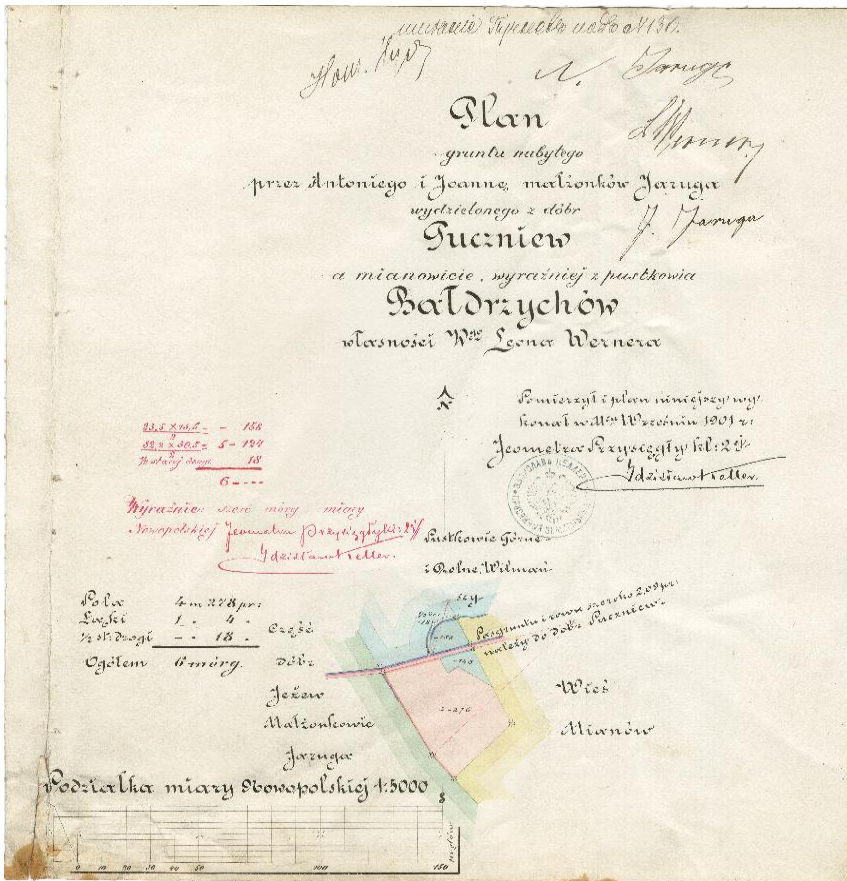 N. Jaruga
Plan
gruntu nabytego
L Werner
przez Antoniego i Joannę, małżonków Jaruga
wydzielonego z dóbr
J. Jaruga
Puczniew
a mianowicie, wyraźniej z pustkowia
Bałdrzychów
własności Wgo Leona Wernera
Pomierzył i plan niniejszy wy
konał w Mcu Wrześniu 1901 r:
Jeometra Przysięgły kl: 2ej
Zdzisław Teller.
23,5 × 13,5 = - 158
2
32,2 × 50,5 = 5 - 124
2
½ starej drogi 18
6 - - - -
Wyraźnie: sześć mórg miary
Nowopolskiej Jeometra Przysięgły kl: 2ej
Zdzisław Teller.
Pustkowie Górne
i Dolne Wilmań
Pola 4 m 278 pr:
Łąki 1 - 4 -
½ st: drogi - - 18 -
Ogółem 6 mórg.
Część
dóbr
Jeżew
Małżonkowie
Jaruga
Pas gruntu i rowu szeroko 2,09 pr:
należy do dóbr Puczniew
Wieś
Mianów
Podziałka miary Nowopolskiej 1:5000
0 10 20 30 40 50 100 150
prętów